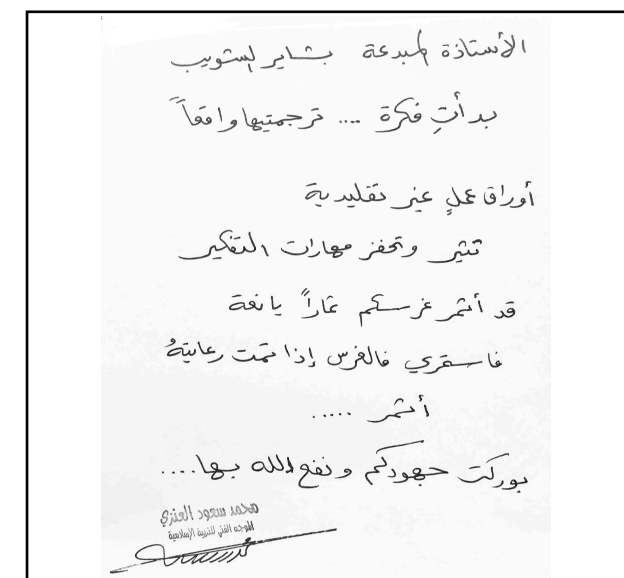 الأستاذة المبدعة بشاير الشويب
بدأتِ فكرة .... ترجمتيها واقعاً
أوراق عملٍ غير تقليدية
تثير وتحفز مهارات التفكير
قد أثمر غرسكم ثماراً يانعة
فاستمري فالغرس إذا تمت رعايتهُ
أثمر .....
بوركت جهودكم ونفع الله بها....
محمد سعود العنزي
الموجه الفني للتربية الإسلامية